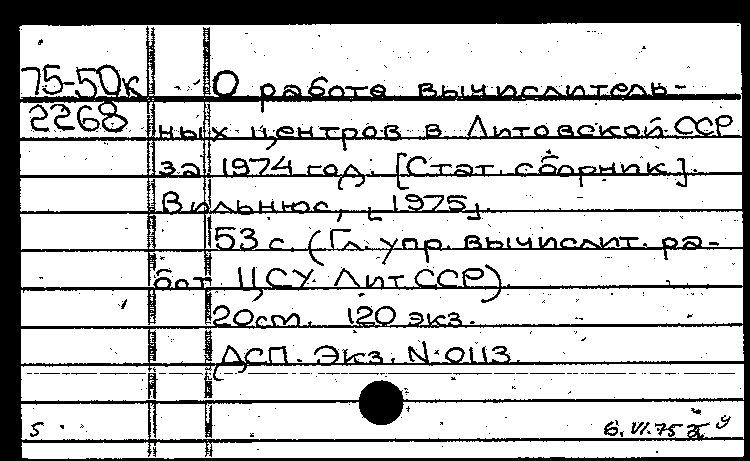 75-50к О работе вычислитель-
2268 ных центров в Литовской ССР
за 1974 год. [Стат. сборник].
Вильнюс, [1975].
53 с. (Гл. упр. вычислит. ра-
бот ЦСУ ЛитССР).
20см. 120 экз.
ДСП. Экз. N:0113.
5 6.VI.75